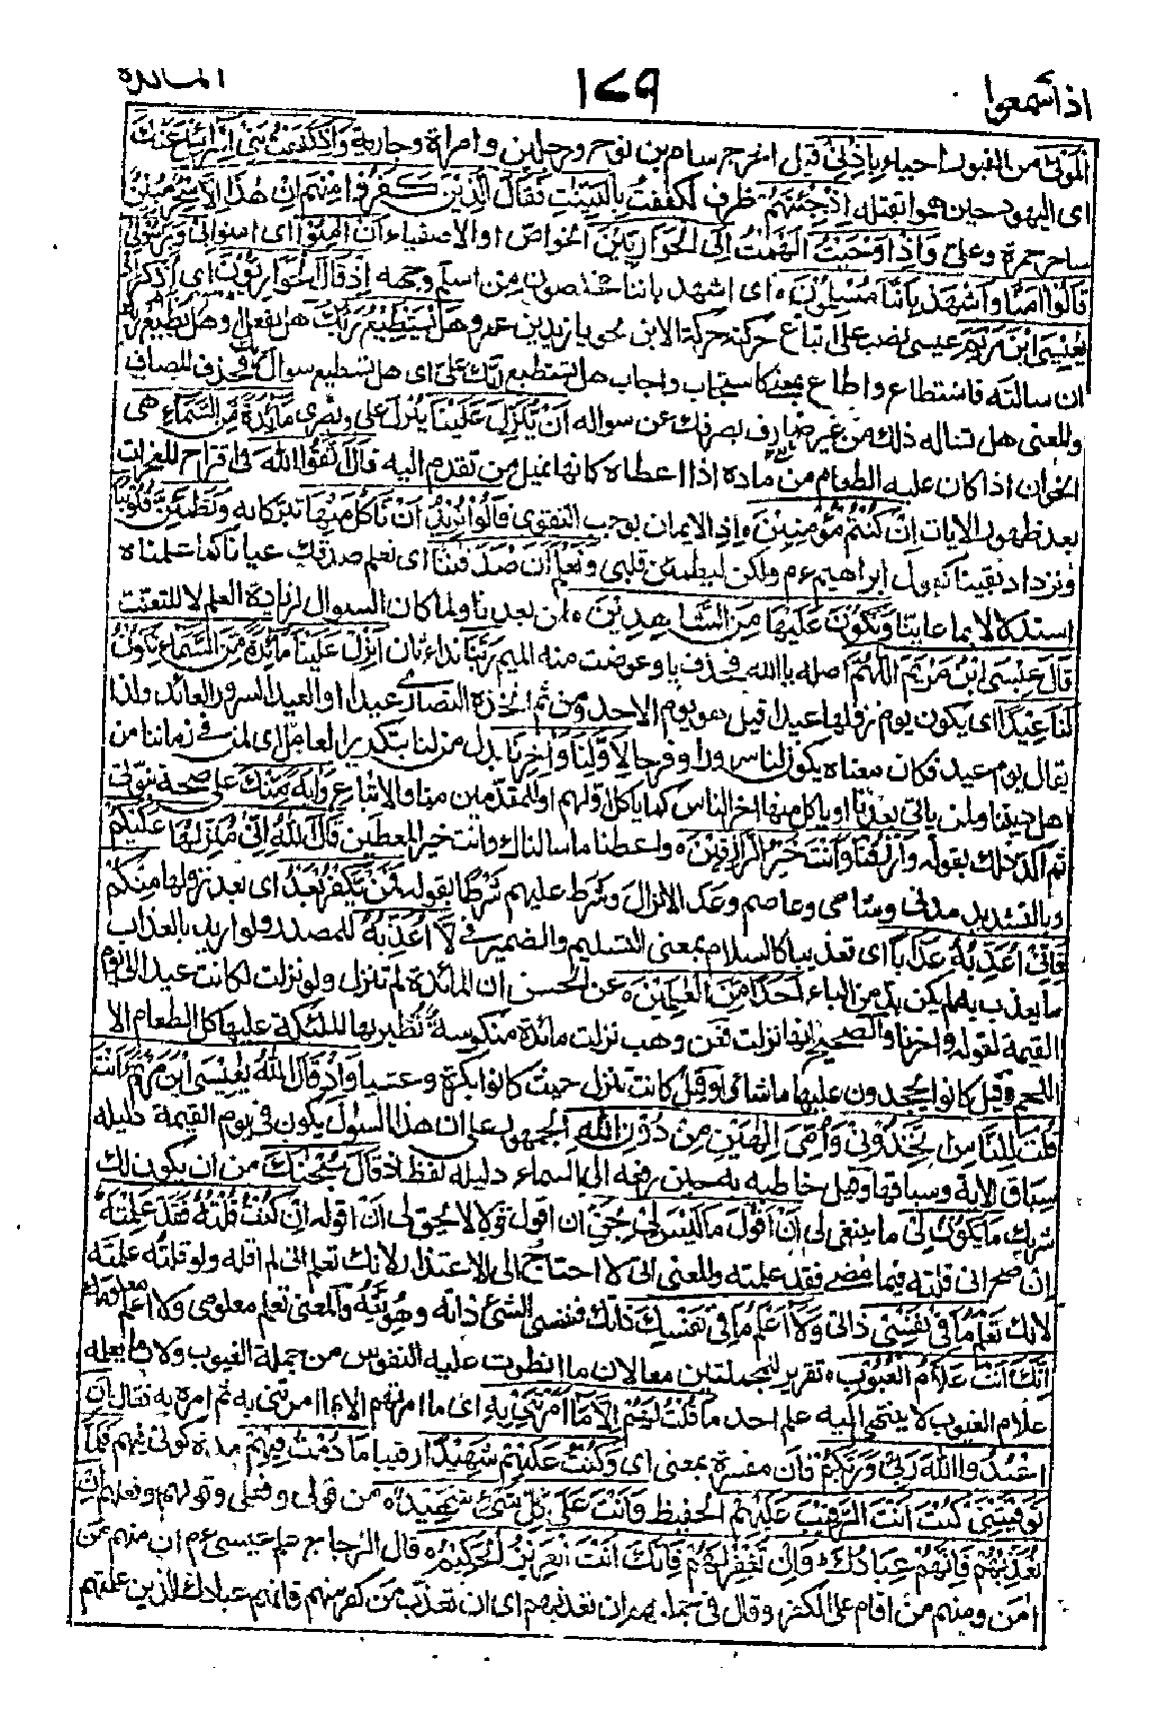 اذا سمعوا
١٧٩
المائدة
الموتى من القبور احياء باذنى قيل اخرج سام بن نوح ورجلين وامراة وجارية واذ كففت بنى اسرائيل عنك
اى اليهود حين هموا بقتله اذ جئتهم ظرف لكففت بالبينت فقال الذين كفروا منهم ان هذا الا سحر مبين
ساحر حمزة وعلى واذ اوحيت الهمت الى الحوارين الخواص او الاصفياء ان امنوا اى امنوا بى وبرسولى
قالوا امنا واشهد باننا مسلمون اى اشهد باننا مخلصون من اسلم وجهه اذ قال الحواريون اى اذكر اذ
يعيسى ابن مريم عيسى نصب على اتباع حركته حركة الابن نحو يا زيد بن عمرو هل يستطيع ربك هل يفعل او هل يطيعك ربك
ان سالته فاستطاع واطاع بمعنى كاستجاب واجاب هل تستطيع ربك على اى هل تستطيع سوال ربك فحذف المضاف
والمعنى هل تساله ذلك من غير صارف يصرفك عن سواله ان ينزل علينا ينزل مكى وبصرى مائدة من السماء هى
الخوان اذا كان عليه الطعام من ماده اذا اعطاه كانها تميد من تقدم اليه قال اتقوا الله فى اقتراح المعجزات
بعد ظهور الايات ان كنتم مؤمنين اذ الايمان يوجب التقوى قالوا نريد ان ناكل منها تبركا به وتطمئن قلوبنا
ونزداد يقينا كقول ابراهيم عم ولكن ليطمئن قلبى ونعلم ان قد صدقتنا اى نعلم صدقك عيانا كما علمناه
استدلالا ونكون عليها من الشاهدين بما عاينا لمن بعدنا ولما كان السوال لزيادة العلم لا للتعنت
قال عيسى ابن مريم اللهم اصله يا الله فحذف يا وعوضت منه الميم ربنا نداء ثان انزل علينا مائدة من السماء تكون
لنا عيدا اى يكون يوم نزولها عيدا قيل هو يوم الاحد ومن ثم اتخذه النصارى عيدا او العيد السرور العائد ولذا
يقال يوم عيد فكان معناه يكون لنا سرورا وفرحا لاولنا واخرنا بدل من لنا بتكرير العامل اى لمن فى زماننا من
اهل ديننا ولمن ياتى بعدنا او ياكل منها اخر الناس كما ياكل اولهم او للمتقدمين منا والاتباع واية منك على صحة نبوتى
ثم اكد ذلك بقوله وارزقنا وانت خير الرازقين واعطنا ما سالناك وانت خير المعطين قال الله انى منزلها عليكم
وبالتشديد مدنى وشامى وعاصم وعد الانزال وشرط عليهم شرطا بقوله فمن يكفر بعد اى بعد نزولها منكم
فانى اعذبه عذابا اى تعذيبا كالسلام بمعنى التسليم والضمير فى لا اعذبه للمصدر ولو اريد بالعذاب
ما يعذب به لم يكن بد من الباء احدا من العلمين عن الحسن ان المائدة لم تنزل ولو نزلت لكانت عيدا الى يوم
القيمة لقوله واخرنا والصحيح انها نزلت فعن وهب نزلت مائدة منكوسة تطير بها الملئكة عليها كل الطعام الا
اللحم وقيل كانوا يجدون عليها ما شاؤا وقيل كانت تنزل حيث كانوا بكرة وعشيا واذ قال الله يعيسى ابن مريم ءانت
قلت للناس اتخذونى وامى الهين من دون الله الجمهور على ان هذا السؤل يكون فى يوم القيمة دليله
سياق الاية وسباقها وقيل خاطبه به حين رفعه الى السماء دليله لفظ اذ قال سبحنك من ان يكون لك
شريك ما يكون لى ما ينبغى لى ان اقول ما ليس لى بحق ان اقول قولا لا يحق لى ان اقوله ان كنت قلته فقد علمته
ان صح انى قلته فيما مضى فقد علمته والمعنى انى لا احتاج الى الاعتذار لانك تعلم انى لم اقله ولو قلته علمته
لانك تعلم ما فى نفسى ذاتى ولا اعلم ما فى نفسك ذاتك فنفس الشئ ذاته وهويته والمعنى تعلم معلومى ولا اعلم معلومك
انك انت علام الغيوب تقرير للجملتين معا لان ما انطوت عليه النفوس من جملة الغيوب ولان ما يعلمه
علام الغيوب لا ينتهى اليه علم احد ما قلت لهم الا ما امرتنى به اى ما امرتهم الا بما امرتنى به ثم امره به فقال ان
اعبدوا الله ربى وربكم فان مفسرة بمعنى اى وكنت عليهم شهيدا رقيبا ما دمت فيهم مدة كونى فيهم فلما
توفيتنى كنت انت الرقيب عليهم الحفيظ وانت على كل شئ شهيد من قولى وفعلى وقولهم وفعلهم ان
تعذبهم فانهم عبادك وان تغفر لهم فانك انت العزيز الحكيم قال الزجاج علم عيسى عم ان منهم من
امن ومنهم من اقام على الكفر وقال فى جملتهم ان تعذبهم اى ان تعذب من كفر منهم فانهم عبادك الذين علمتهم